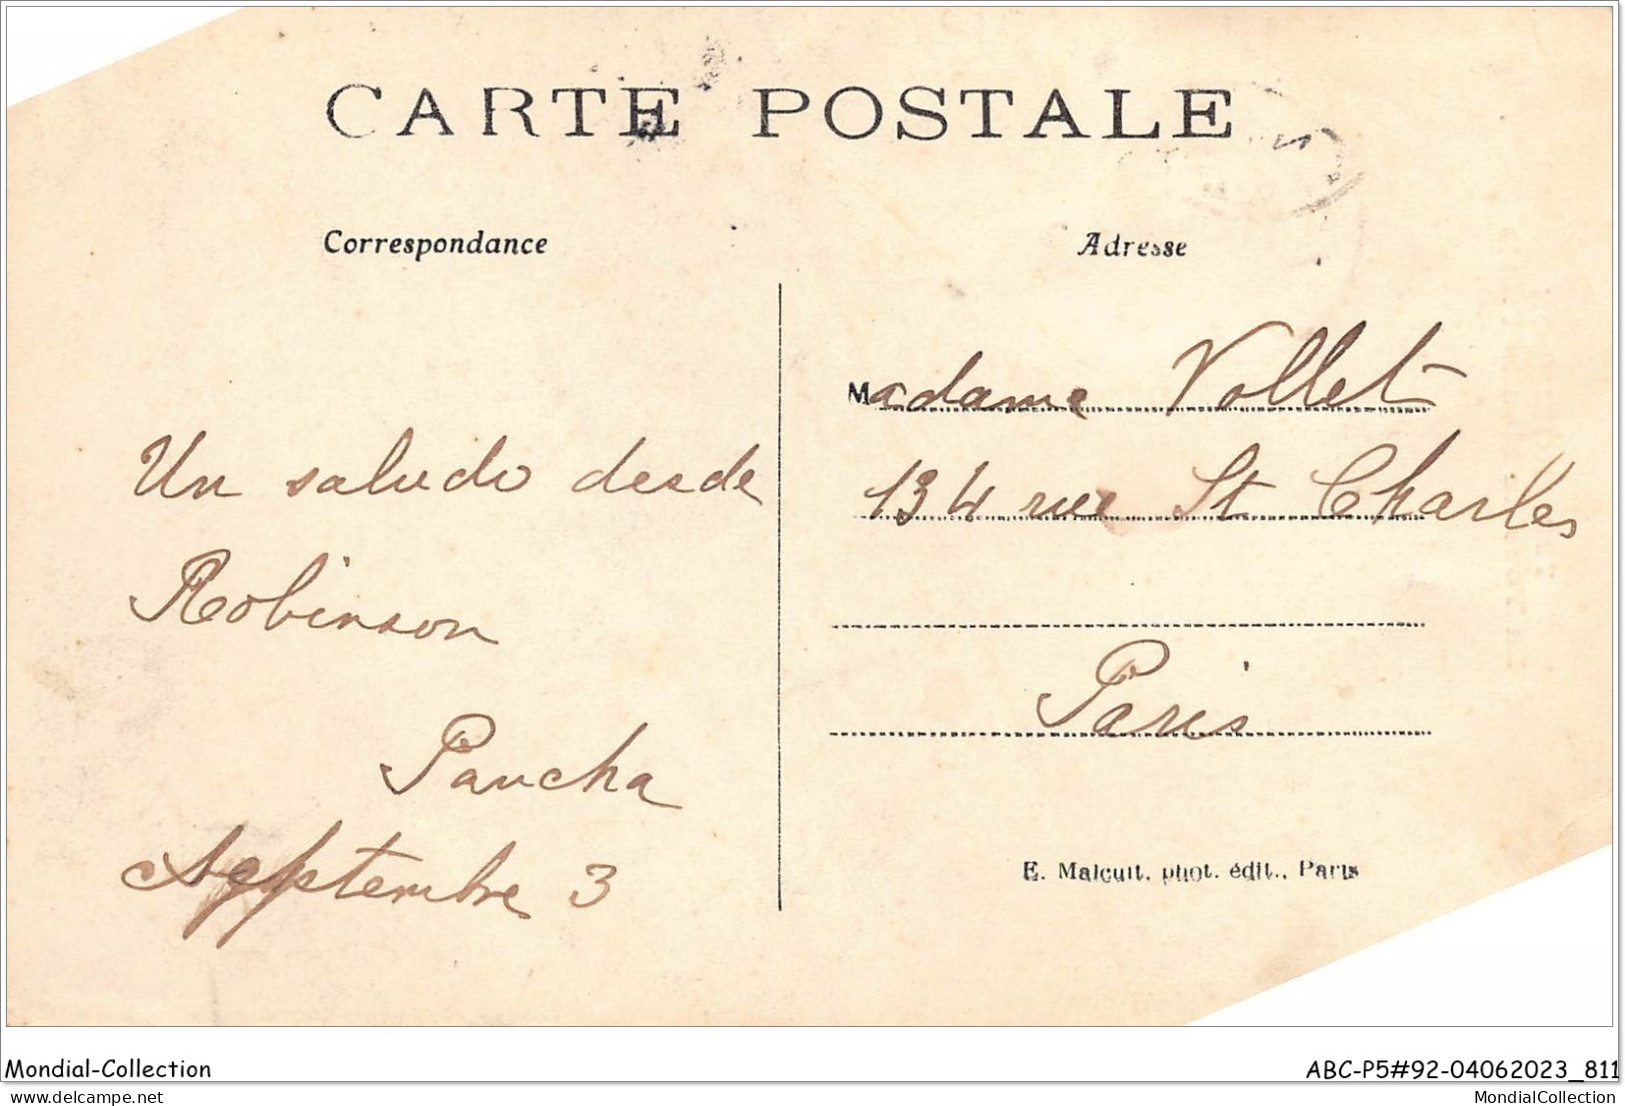 CARTE POSTALE
Correspondance
Adresse
Un saludo desde
Robinson
Pancha
Septembre 3
Madame Vollet
134 rue St Charles
Paris
E. Malcuit, phot. édit., Paris
Mondial-Collection
ABC-P5#92-04062023_811
www.delcampe.net
MondialCollection